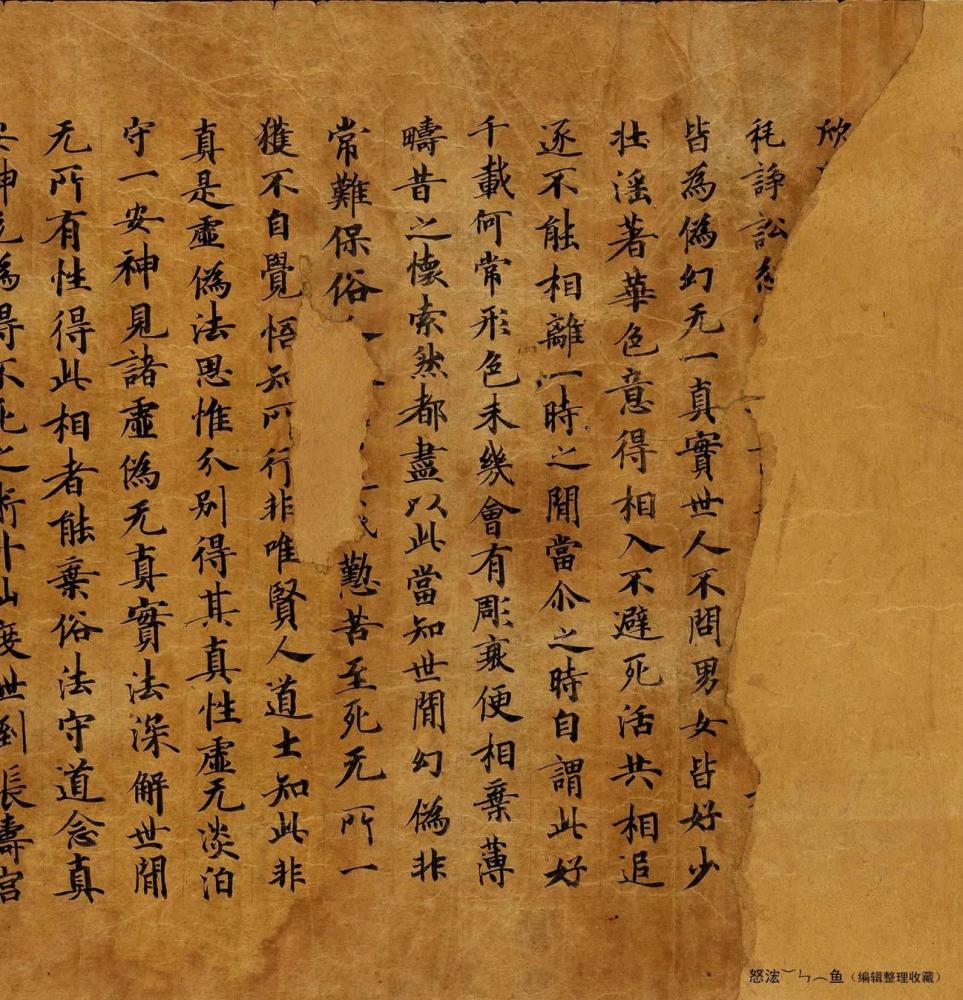 欣
秏諍訟
皆為偽幻无一真實世人不問男女皆好少
壯滛著華色意得相入不避死活共相追
逐不能相離一時之間當尒之時自謂此好
千載何常形色未幾會有彫衰便相棄薄
疇昔之懷索然都盡以此當知世間幻偽非
常難保俗 懃苦至死无所一
獲不自覺悟知所行非唯賢人道士知此非
真是虛偽法思惟分別得其真性虛无淡泊
守一安神見諸虛偽无真實法深解世間
无所有性得此相者能棄俗法守道念真
神无為得不死之術升山度世到長壽宮
怒浤︶ㄣ︵鱼（编辑整理收藏）